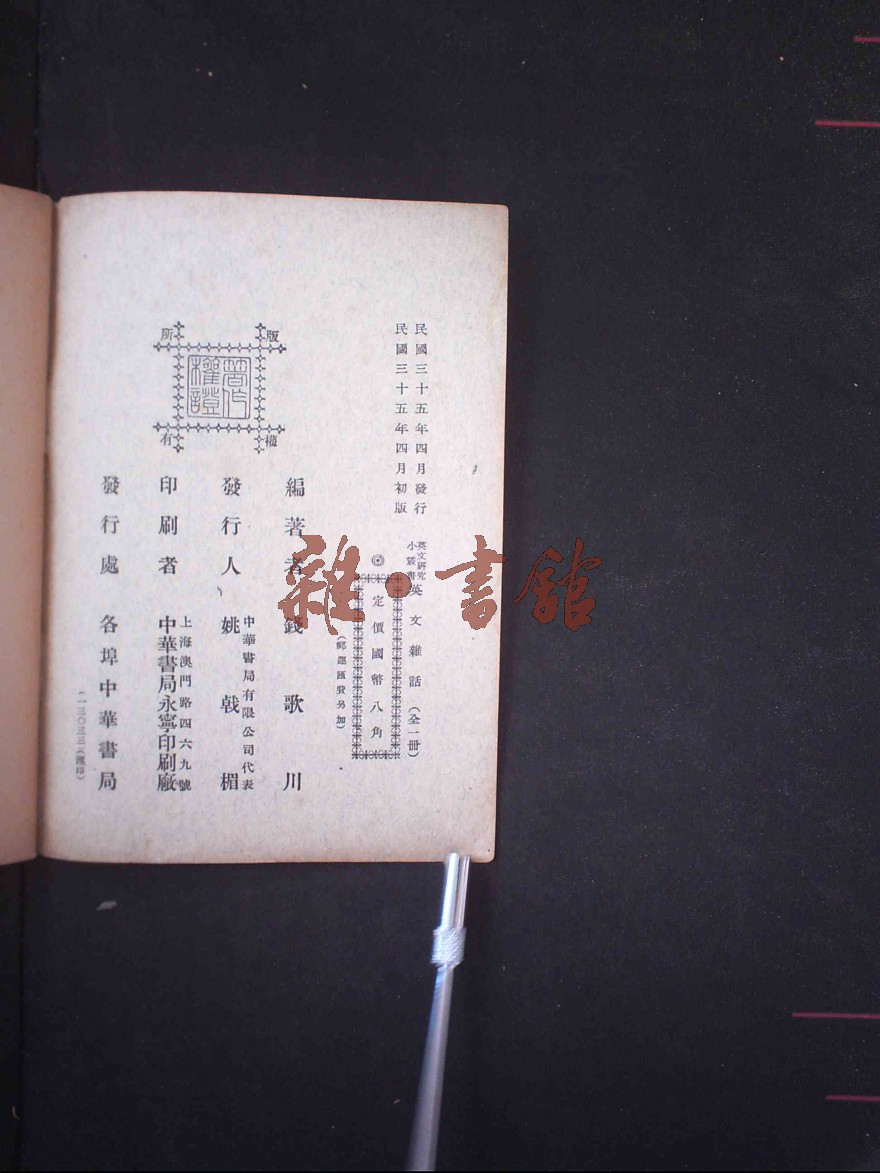 民國三十五年四月發行
民國三十五年四月初版
英文研究
小叢書
英文雜話（全一冊）
◎定價國幣八角
（郵運匯費另加）
編著者 錢歌川
發行人 中華書局有限公司代表
姚戟楣
印刷者 上海澳門路四六九號
中華書局永寧印刷廠
發行處 各埠中華書局
版權所有
著作權證
雜·書館